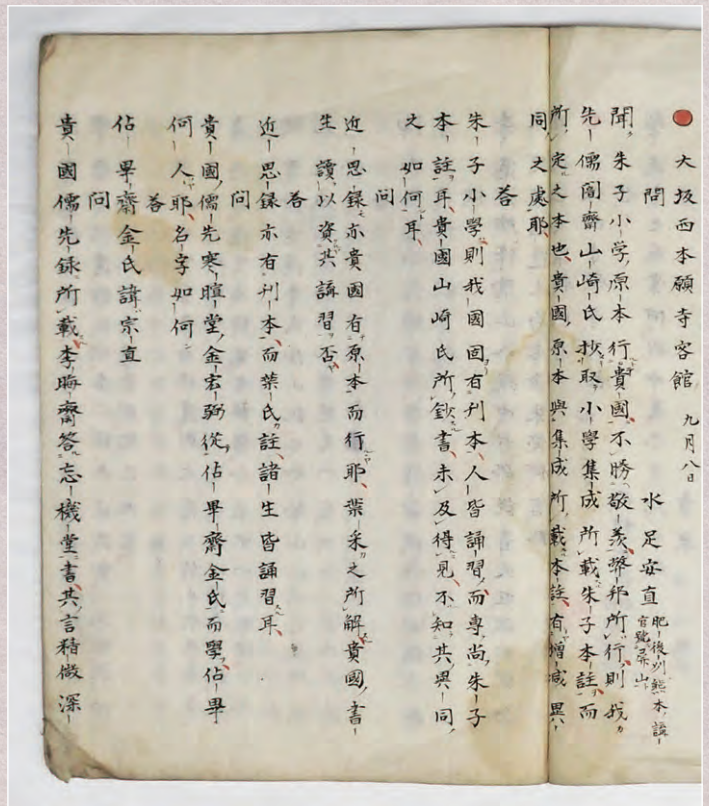 大坂西本願寺客館 九月八日
問 水足安直 肥後州熊本講官號屏山
聞朱子小学原本行貴國不勝敬羨弊邦所行則我
先儒闇齋山﨑氏抄取小學集成所載朱子本註而
所定之本也貴國原本與集成所載本註有増减異
同之處耶
答
朱子小學則我國固有刋本人皆誦習而專尚朱子
本註耳貴國山崎氏所鈔書未及得見不知其異同
之如何耳
問
近思録亦貴國有原本而行耶葉采之所解貴國書
生讀以資其講習否
答
近思録亦有刋本而葉氏註諸生皆誦習耳
問
貴國儒先寒暄堂金宏弼從佔畢齋金氏而學佔畢
何人耶名字如何
答
佔畢齋金氏諱宗直
問
貴國儒先録所載李晦齋答忘機堂書其言精微深